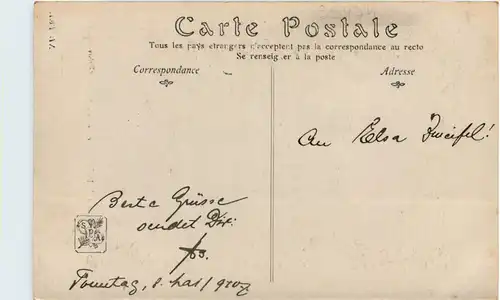 Carte Postale
Tous les pays étrangers n'acceptent pas la correspondance au recto
Se renseigner à la poste
Correspondance
Adresse
An Elsa Zweifel!
Beste Grüsse
sendet Dir:
Sonntag, 8.